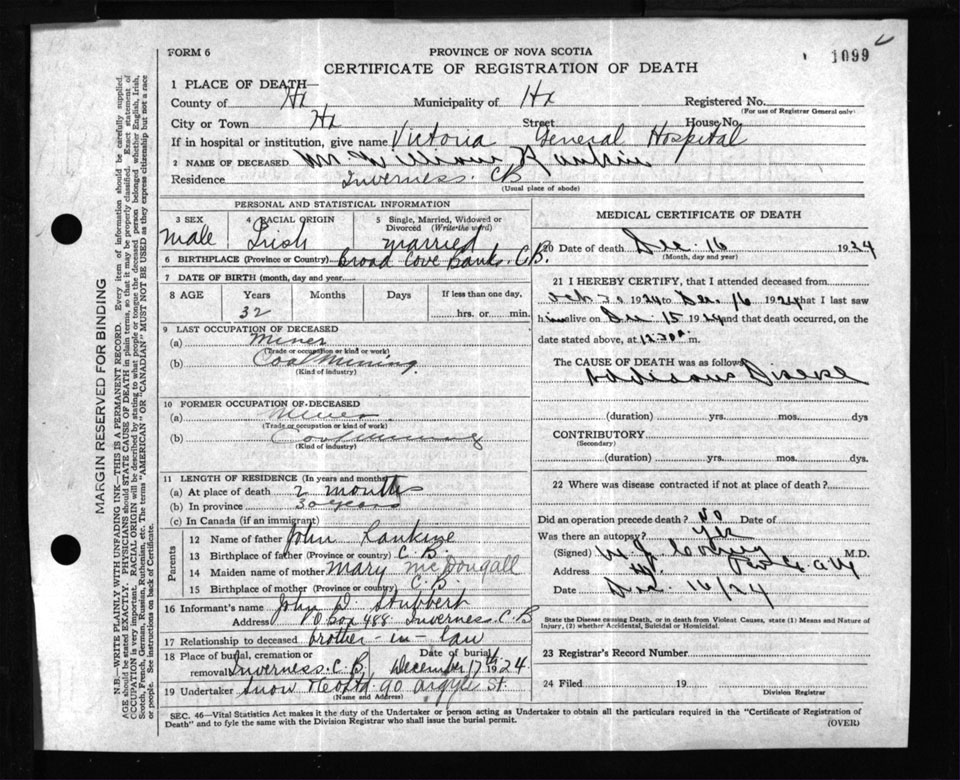 FORM 6
PROVINCE OF NOVA SCOTIA
1099
CERTIFICATE OF REGISTRATION OF DEATH
1 PLACE OF DEATH—
County of Hx Municipality of Hx Registered No.
(For use of Registrar General only)
City or Town Hx Street House No.
If in hospital or institution, give name Victoria General Hospital
2 NAME OF DECEASED Mr. William Rankin
Residence Inverness. CB
(Usual place of abode)
PERSONAL AND STATISTICAL INFORMATION
3 SEX Male
4 RACIAL ORIGIN Irish
5 Single, Married, Widowed or Divorced (Write the word) married
6 BIRTHPLACE (Province or Country) Broad Cove Banks. C.B.
7 DATE OF BIRTH (month, day and year)
8 AGE Years Months Days If less than one day,
32 hrs. or min.
9 LAST OCCUPATION OF DECEASED
(a) Miner
(Trade or occupation or kind or work)
(b) Coal Mining
(Kind of industry)
10 FORMER OCCUPATION OF DECEASED
(a) Miner
(Trade or occupation or kind or work)
(b) Coal Mining
(Kind of industry)
11 LENGTH OF RESIDENCE (In years and months)
(a) At place of death 2 months
(b) In province 30 years
(c) In Canada (if an immigrant)
Parents
12 Name of father John Rankine
13 Birthplace of father (Province or country) C.B.
14 Maiden name of mother Mary McDougall
15 Birthplace of mother (Province or country) C.B.
16 Informant's name John D. Stubbert
Address P.O Box 488. Inverness. C B
17 Relationship to deceased brother-in-law
18 Place of burial, cremation or removal Inverness. C.B. Date of burial December 17th 1924
19 Undertaker Snow & Co Ltd. 90 Argyle St.
(Name and Address)
MEDICAL CERTIFICATE OF DEATH
20 Date of death Dec 16 1924
(Month, day and year)
21 I HEREBY CERTIFY, that I attended deceased from
1924 to Dec. 16 1924 that I last saw
him alive on Dec 15 1924 and that death occurred, on the
date stated above, at 12:30 a m.
The CAUSE OF DEATH was as follows:
Addisons Disease
(duration) yrs. mos. dys
CONTRIBUTORY
(Secondary)
(duration) yrs. mos. dys.
22 Where was disease contracted if not at place of death?
Did an operation precede death? No Date of
Was there an autopsy? Yes
(Signed) M.D.
Address
Date Dec 16/24
State the Disease causing Death, or in death from Violent Causes, state (1) Means and Nature of
Injury, (2) whether Accidental, Suicidal or Homicidal.
23 Registrar's Record Number
24 Filed 19
Division Registrar
SEC. 46—Vital Statistics Act makes it the duty of the Undertaker or person acting as Undertaker to obtain all the particulars required in the "Certificate of Registration of
Death" and to fyle the same with the Division Registrar who shall issue the burial permit.
(OVER)
MARGIN RESERVED FOR BINDING
N.B.—WRITE PLAINLY WITH UNFADING INK—THIS IS A PERMANENT RECORD. Every item of information should be carefully supplied.
AGE should be stated EXACTLY. PHYSICIANS should STATE CAUSE OF DEATH in plain terms, so that it may be properly classified. Exact statement of
OCCUPATION is very important. RACIAL ORIGIN will be described by stating to what people or tongue the deceased person belonged whether English, Irish,
Scotch, French, German, Russian, Ruthenian, etc. The terms "AMERICAN" OR "CANADIAN" MUST NOT BE USED as they express citizenship but not a race
or people. See instructions on back of Certificate.